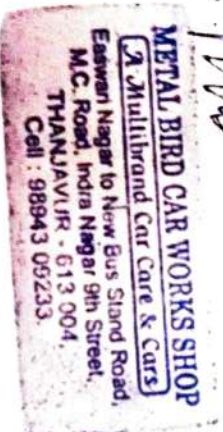 METAL BIRD CAR WORKS SHOP
A Multibrand Car Care & Cars
Easwari Nagar to New Bus Stand Road,
M.C. Road, Indra Nagar 9th Street,
THANJAVUR - 613 004.
Cell : 98943 09233.